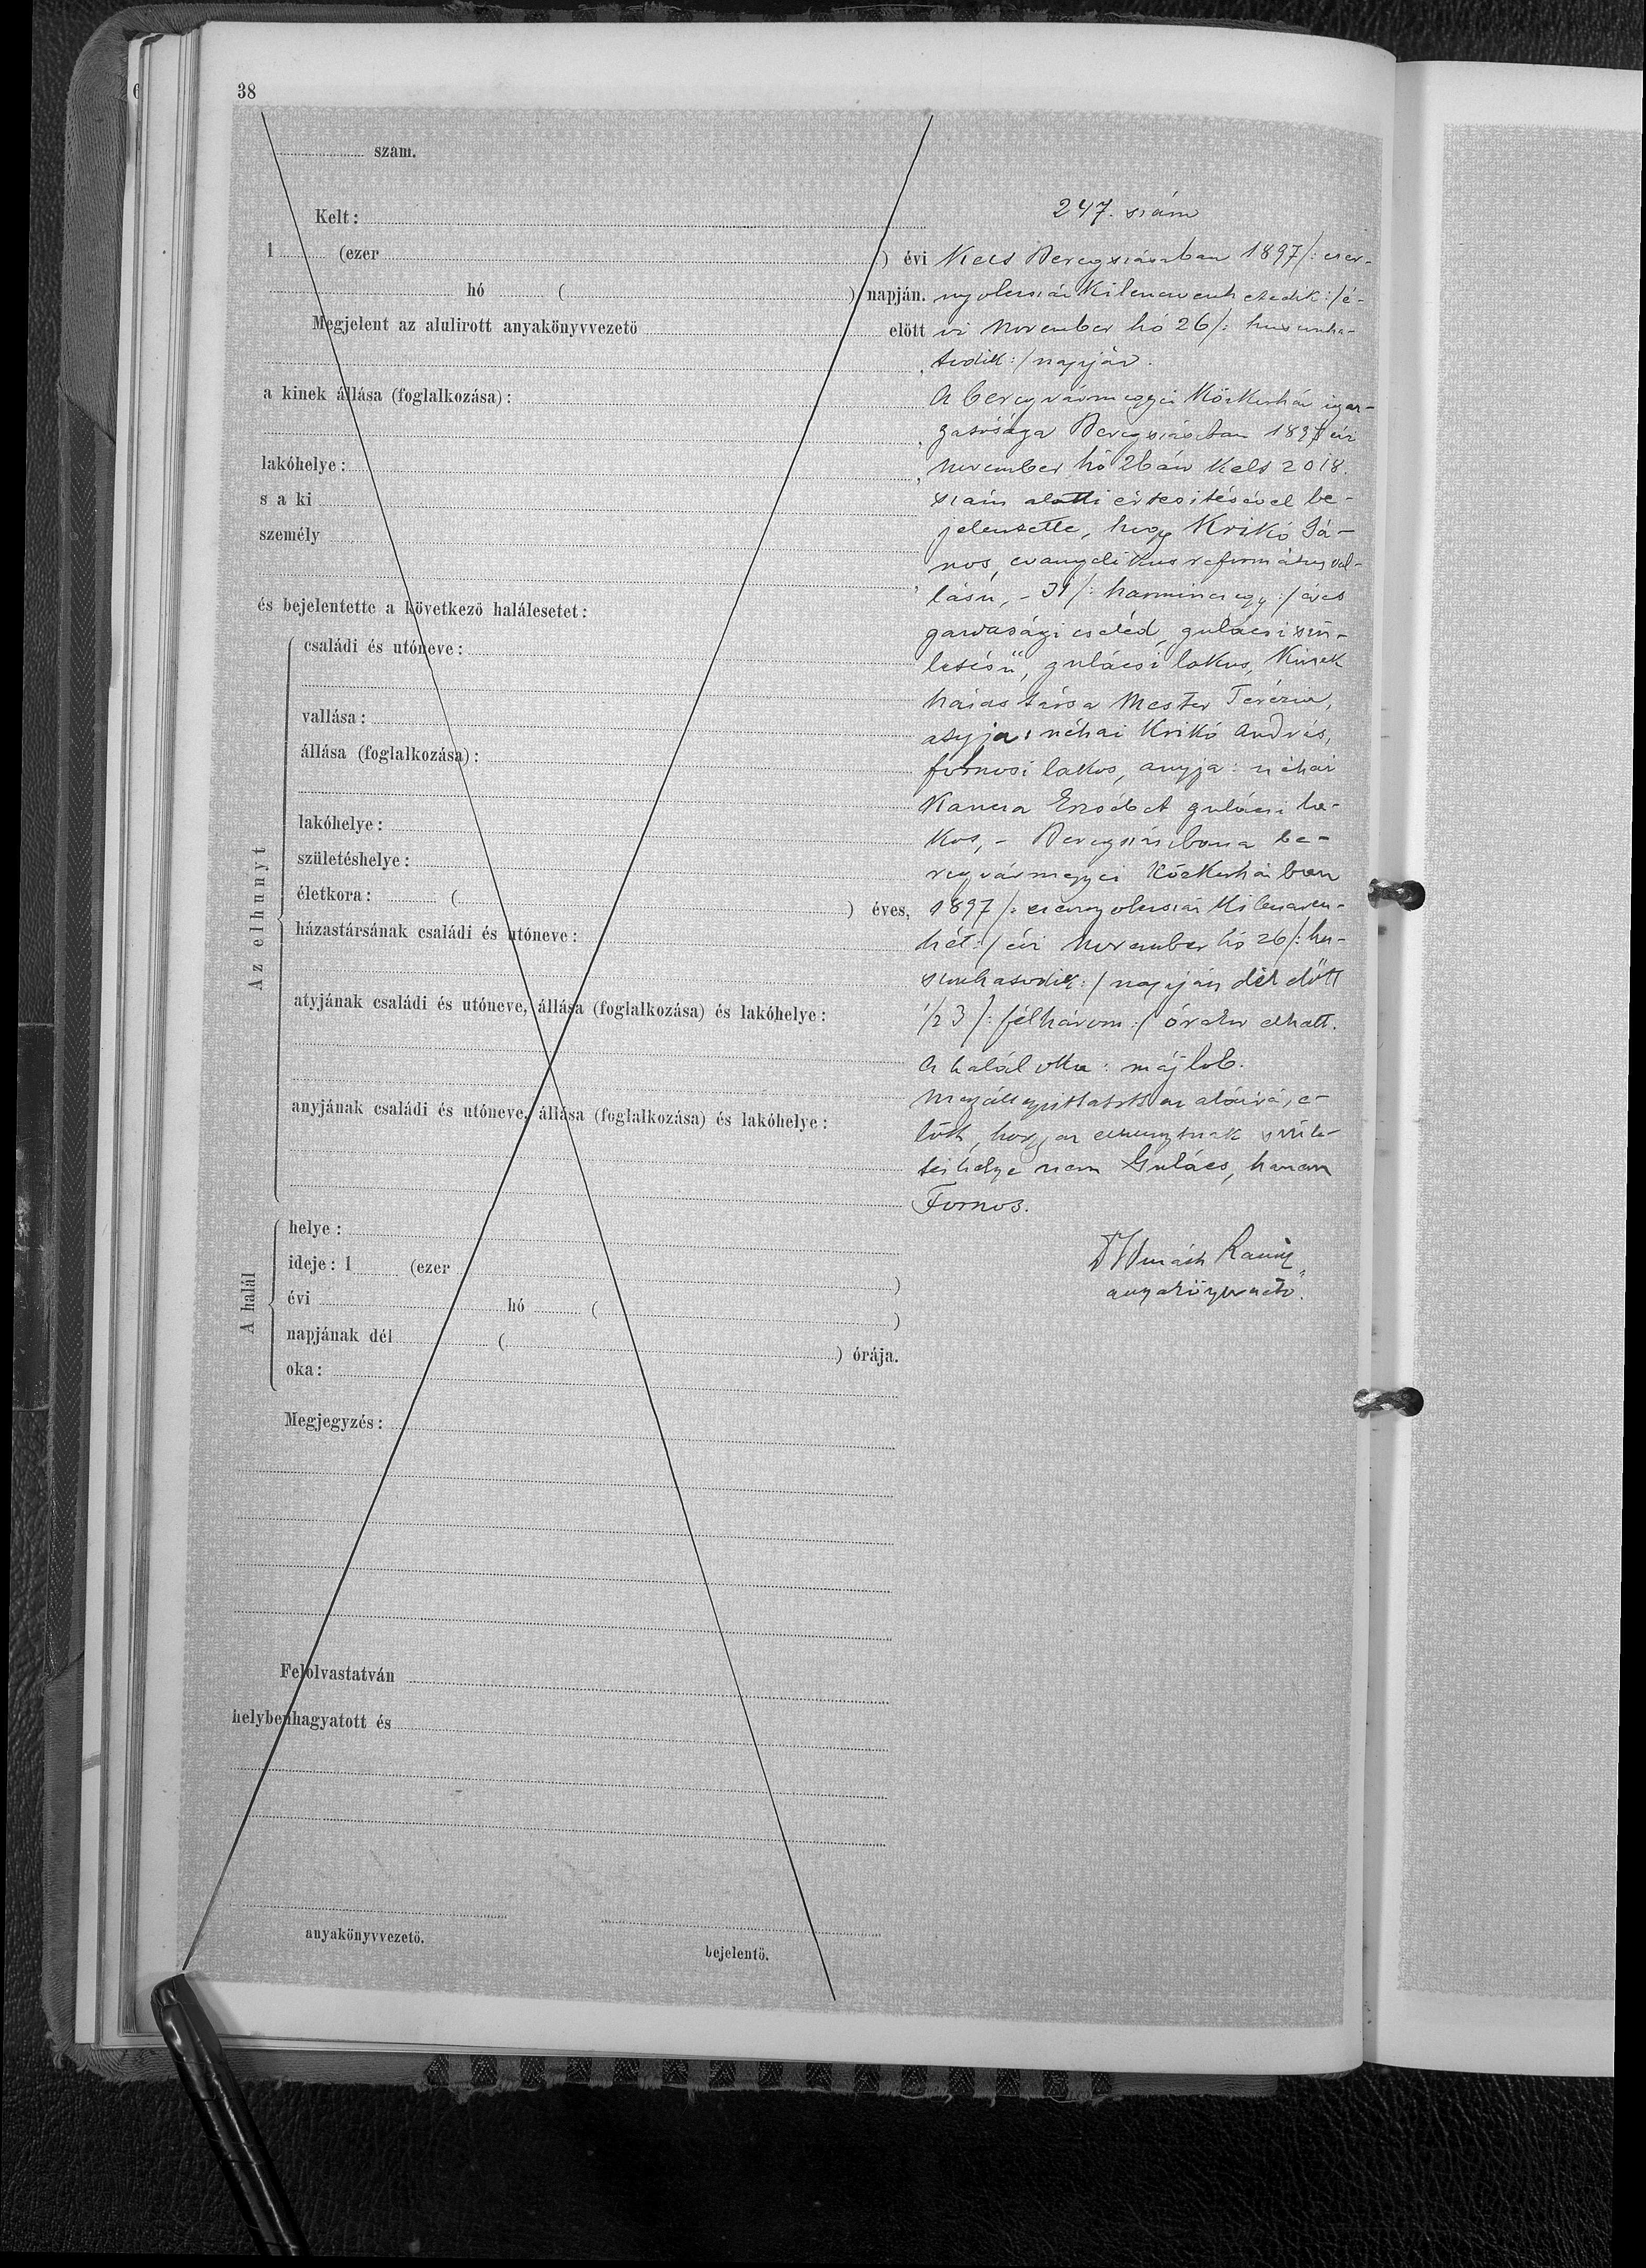 38
szám.
Kelt:
1 (ezer ) évi
hó ( ) napján.
Megjelent az alulirott anyakönyvvezető előtt
,
a kinek állása (foglalkozása):
,
lakóhelye: ,
s a ki
személy
,
és bejelentette a következő halálesetet:
Az elhunyt
családi és utóneve:
vallása:
állása (foglalkozása):
lakóhelye:
születéshelye:
életkora: ( ) éves,
házastársának családi és utóneve:
atyjának családi és utóneve, állása (foglalkozása) és lakóhelye:
anyjának családi és utóneve, állása (foglalkozása) és lakóhelye:
A halál
helye:
ideje: 1 (ezer )
évi hó ( )
napjának dél ( ) órája.
oka:
Megjegyzés:
Felolvastatván
helybenhagyatott és
anyakönyvvezető.
bejelentő.
247. szám
Kelt Beregszászban 1897/: ezer-
nyolcszáz kilencvenhetedik:/ é-
vi november hó 26/: huszonha-
todik:/ napján.
A beregvármegyei Közkórház igaz-
gatósága Beregszászban 1897 évi
november hó 26án kelt 2018.
szám alatti értesitésével be-
jelentette, hogy Krikó Já-
nos, evangelikus református val-
lású, - 31/: harmincegy:/ éves
gazdasági cseléd, gulácsi szü-
letésű, gulácsi lakos, kinek
házastársa Mester Terézia,
atyja: néhai Krikó András,
fornosi lakos, anyja: néhai
Erzsébet gulácsi la-
kos, - Beregszászban a be-
regvármegyei Közkórházban
1897/: ezernyolcszáz kilencven-
hét:/ évi november hó 26/: hu-
szonhatodik:/ napján dél előtt
1/2 3/: félhárom:/ órakor elhalt.
A halál oka: májlob.
Megállapittatott az aláirás e-
lőtt, hogy az elhunytnak szüle-
téshelye nem Gulács, hanem
Fornos.
anyakönyvvezető.